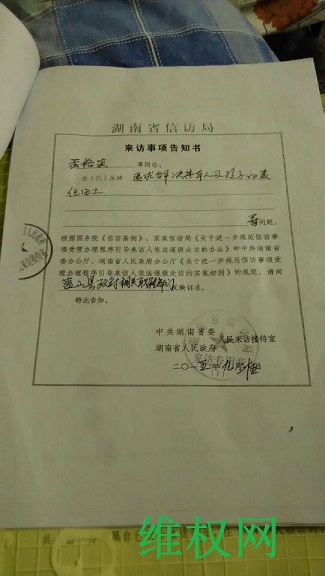 湖南省信访局
来访事项告知书
等同志:
你(们)反映 要求解决本人及孩子的责
任田土
等问题。
根据国务院《信访条例》、国家信访局《关于进一步规范信访事
项受理办理程序引导来访人依法逐级走访的办法》和中共湖南省
委办公厅、湖南省人民政府办公厅《关于进一步规范信访事项受
理办理程序引导来访人依法逐级走访的实施细则》的规定,请向
县政府相关职能部门反映诉求。
特此告知。
中共湖南省委
湖南省人民政府
人民来访接待室
二〇一五年
维权网